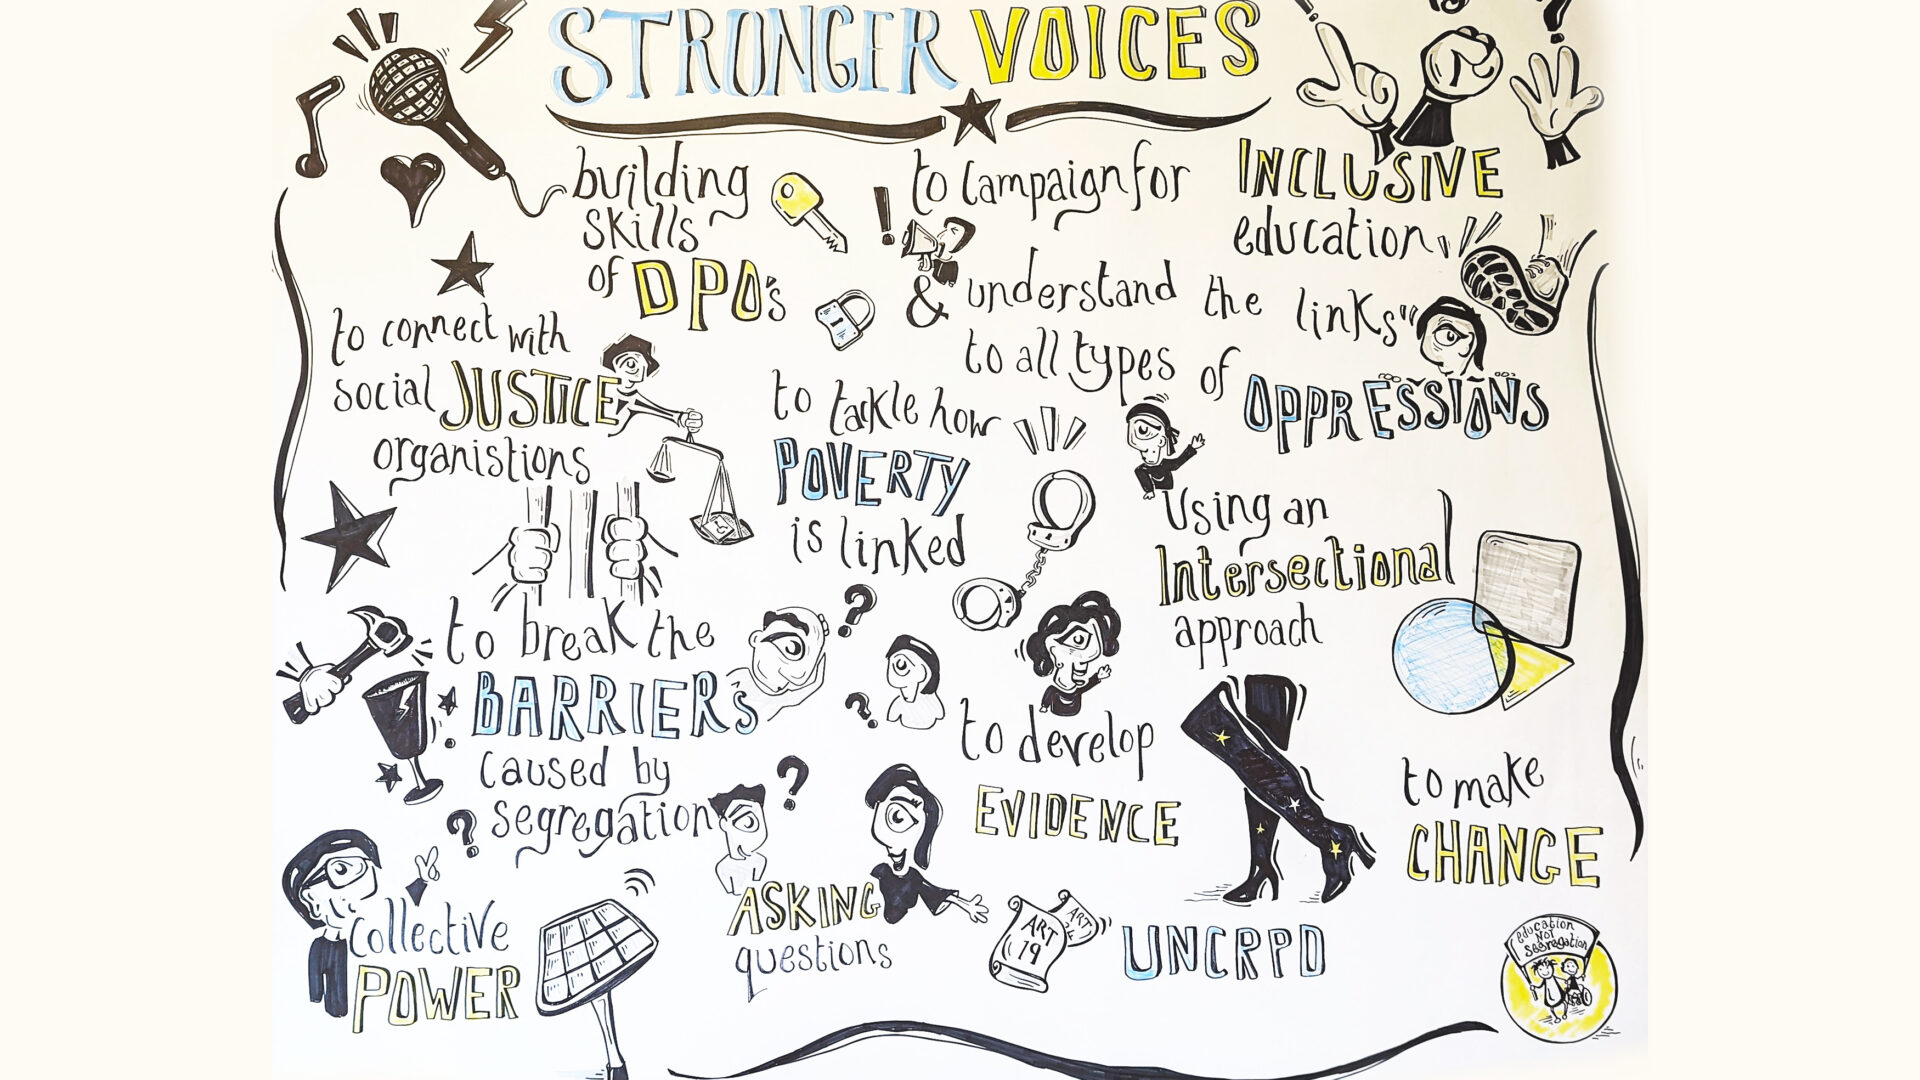 STRONGER VOICES
building
skills
of DPO's
to campaign for
INCLUSIVE
education
& understand the links
to all types of OPPRESSIONS
to connect with
social JUSTICE
organistions
to tackle how
POVERTY
is linked
Using an
Intersectional
approach
to break the
BARRIERS
caused by
segregation
to develop
EVIDENCE
to make
CHANGE
Collective
POWER
ASKING
questions
ART
19
ART
UNCRPD
education
NOT
segregation